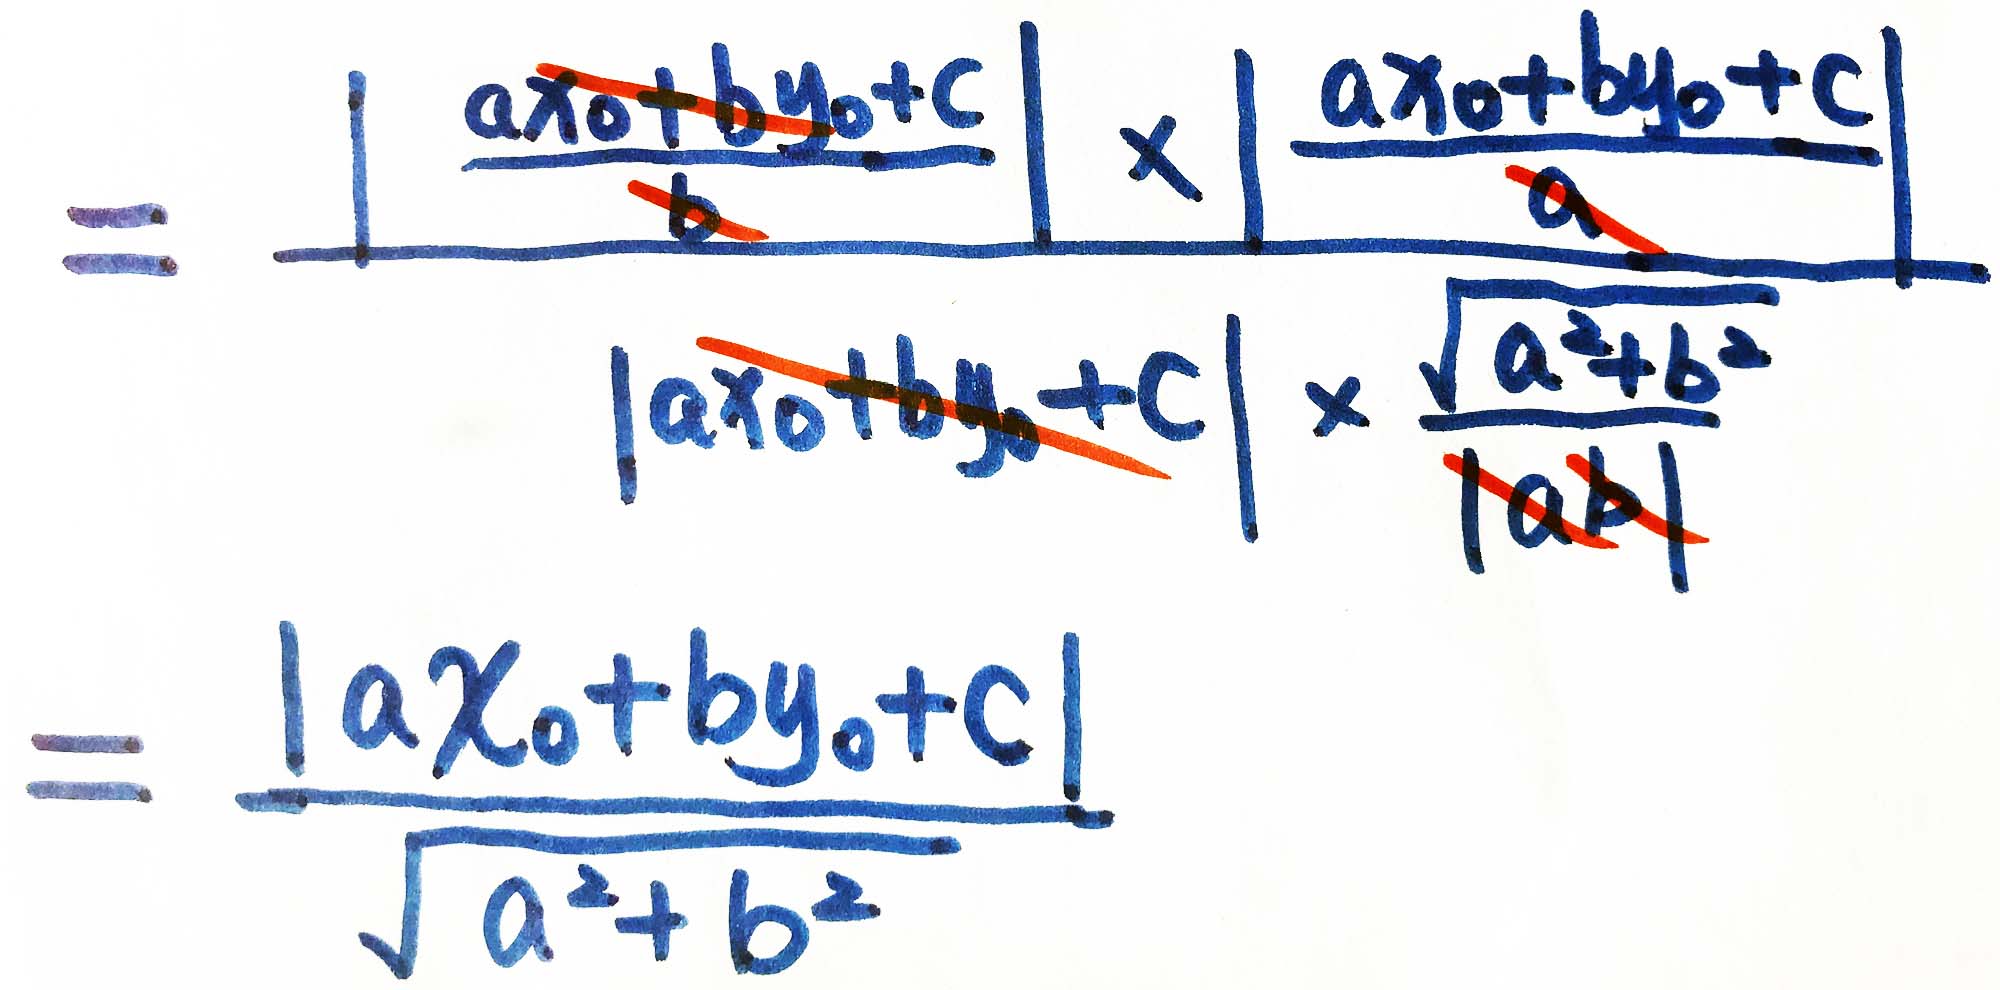 = | (ax₀+by₀+c)/b | × | (ax₀+by₀+c)/a |
|ax₀+by₀+c| × √(a²+b²)/|ab|
= |ax₀+by₀+c|
√(a²+b²)